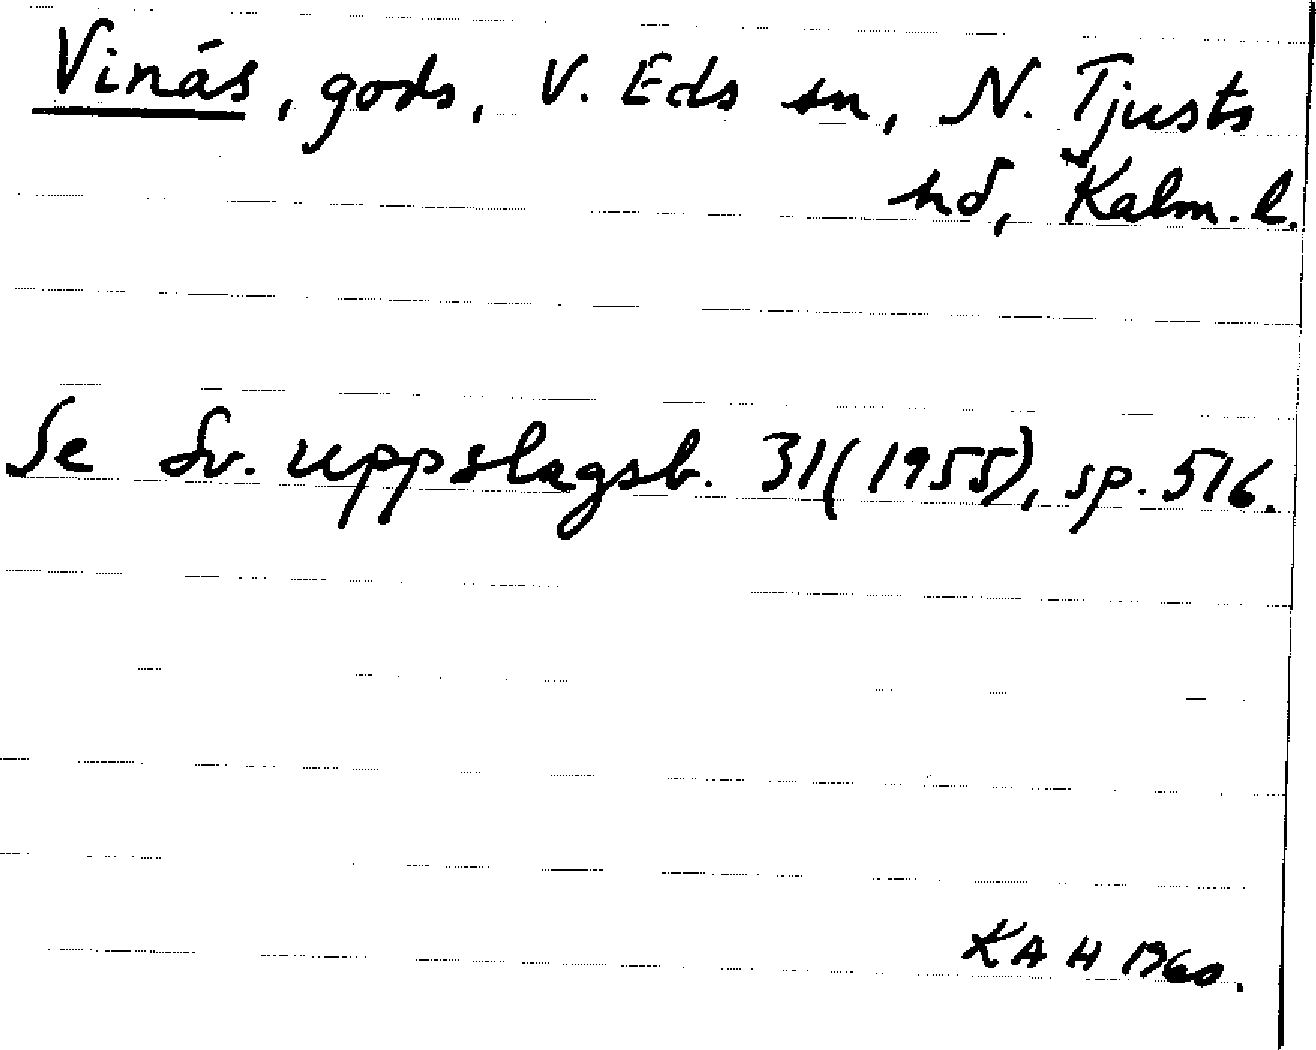 Vinås, gods, V. Eds sn, N. Tjusts
hd, Kalm. l.
Se Sv. uppslagsb. 31 (1955), sp. 516.
KAH 1960.